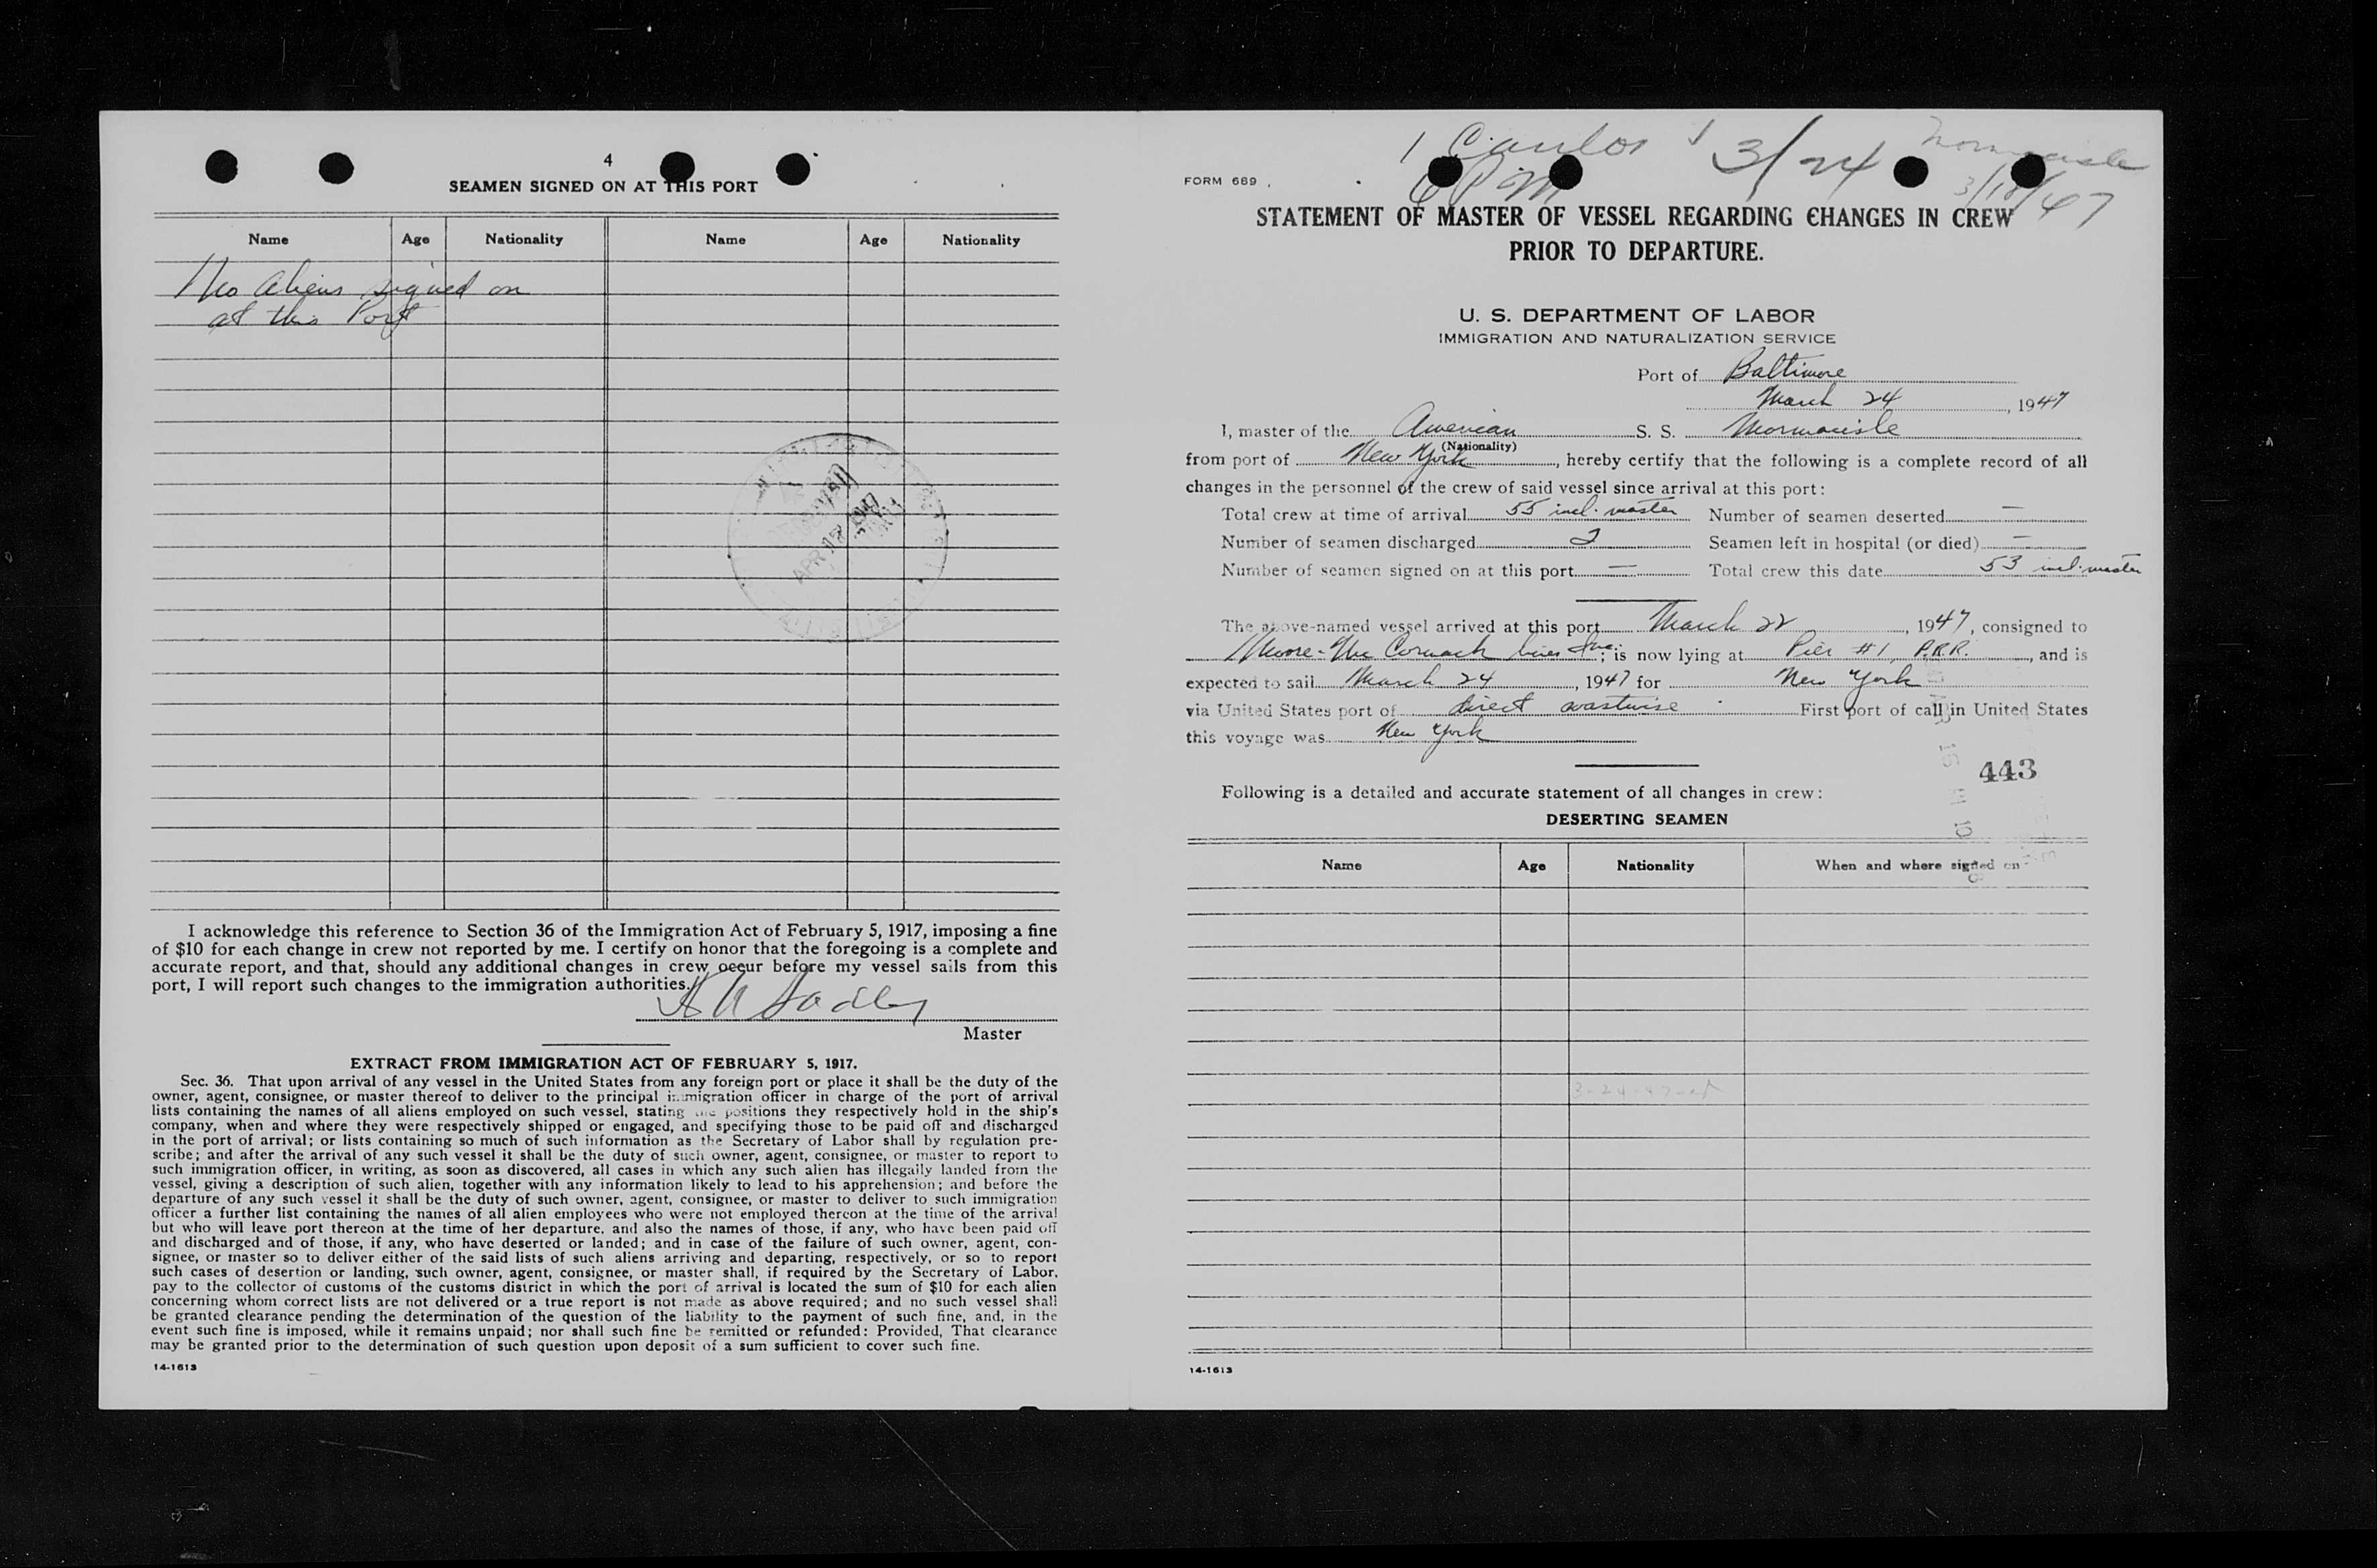 4
SEAMEN SIGNED ON AT THIS PORT
Name Age Nationality Name Age Nationality
No aliens signed on
at this Port
APR 1947
I acknowledge this reference to Section 36 of the Immigration Act of February 5, 1917, imposing a fine
of $10 for each change in crew not reported by me. I certify on honor that the foregoing is a complete and
accurate report, and that, should any additional changes in crew occur before my vessel sails from this
port, I will report such changes to the immigration authorities.
Master
EXTRACT FROM IMMIGRATION ACT OF FEBRUARY 5, 1917.
Sec. 36. That upon arrival of any vessel in the United States from any foreign port or place it shall be the duty of the
owner, agent, consignee, or master thereof to deliver to the principal immigration officer in charge of the port of arrival
lists containing the names of all aliens employed on such vessel, stating the positions they respectively hold in the ship's
company, when and where they were respectively shipped or engaged, and specifying those to be paid off and discharged
in the port of arrival; or lists containing so much of such information as the Secretary of Labor shall by regulation pre-
scribe; and after the arrival of any such vessel it shall be the duty of such owner, agent, consignee, or master to report to
such immigration officer, in writing, as soon as discovered, all cases in which any such alien has illegally landed from the
vessel, giving a description of such alien, together with any information likely to lead to his apprehension; and before the
departure of any such vessel it shall be the duty of such owner, agent, consignee, or master to deliver to such immigration
officer a further list containing the names of all alien employees who were not employed thereon at the time of the arrival
but who will leave port thereon at the time of her departure, and also the names of those, if any, who have been paid off
and discharged and of those, if any, who have deserted or landed; and in case of the failure of such owner, agent, con-
signee, or master so to deliver either of the said lists of such aliens arriving and departing, respectively, or so to report
such cases of desertion or landing, such owner, agent, consignee, or master shall, if required by the Secretary of Labor,
pay to the collector of customs of the customs district in which the port of arrival is located the sum of $10 for each alien
concerning whom correct lists are not delivered or a true report is not made as above required; and no such vessel shall
be granted clearance pending the determination of the question of the liability to the payment of such fine, and, in the
event such fine is imposed, while it remains unpaid; nor shall such fine be remitted or refunded: Provided, That clearance
may be granted prior to the determination of such question upon deposit of a sum sufficient to cover such fine.
14-1613
1 Carlos 3/24 Mormacisle
FORM 689 6 PM 3/18/47
STATEMENT OF MASTER OF VESSEL REGARDING CHANGES IN CREW
PRIOR TO DEPARTURE.
U. S. DEPARTMENT OF LABOR
IMMIGRATION AND NATURALIZATION SERVICE
Port of Baltimore
March 24, 1947
I, master of the American S. S. Mormacisle
(Nationality)
from port of New York, hereby certify that the following is a complete record of all
changes in the personnel of the crew of said vessel since arrival at this port:
Total crew at time of arrival 55 incl. master Number of seamen deserted —
Number of seamen discharged 2 Seamen left in hospital (or died) —
Number of seamen signed on at this port — Total crew this date 53 incl. master
The above-named vessel arrived at this port March 22, 1947, consigned to
Moore-McCormack Lines Inc.; is now lying at Pier #1, P.R.R., and is
expected to sail March 24, 1947 for New York
via United States port of direct coastwise First port of call in United States
this voyage was New York
443
Following is a detailed and accurate statement of all changes in crew:
DESERTING SEAMEN
Name Age Nationality When and where signed on
14-1613